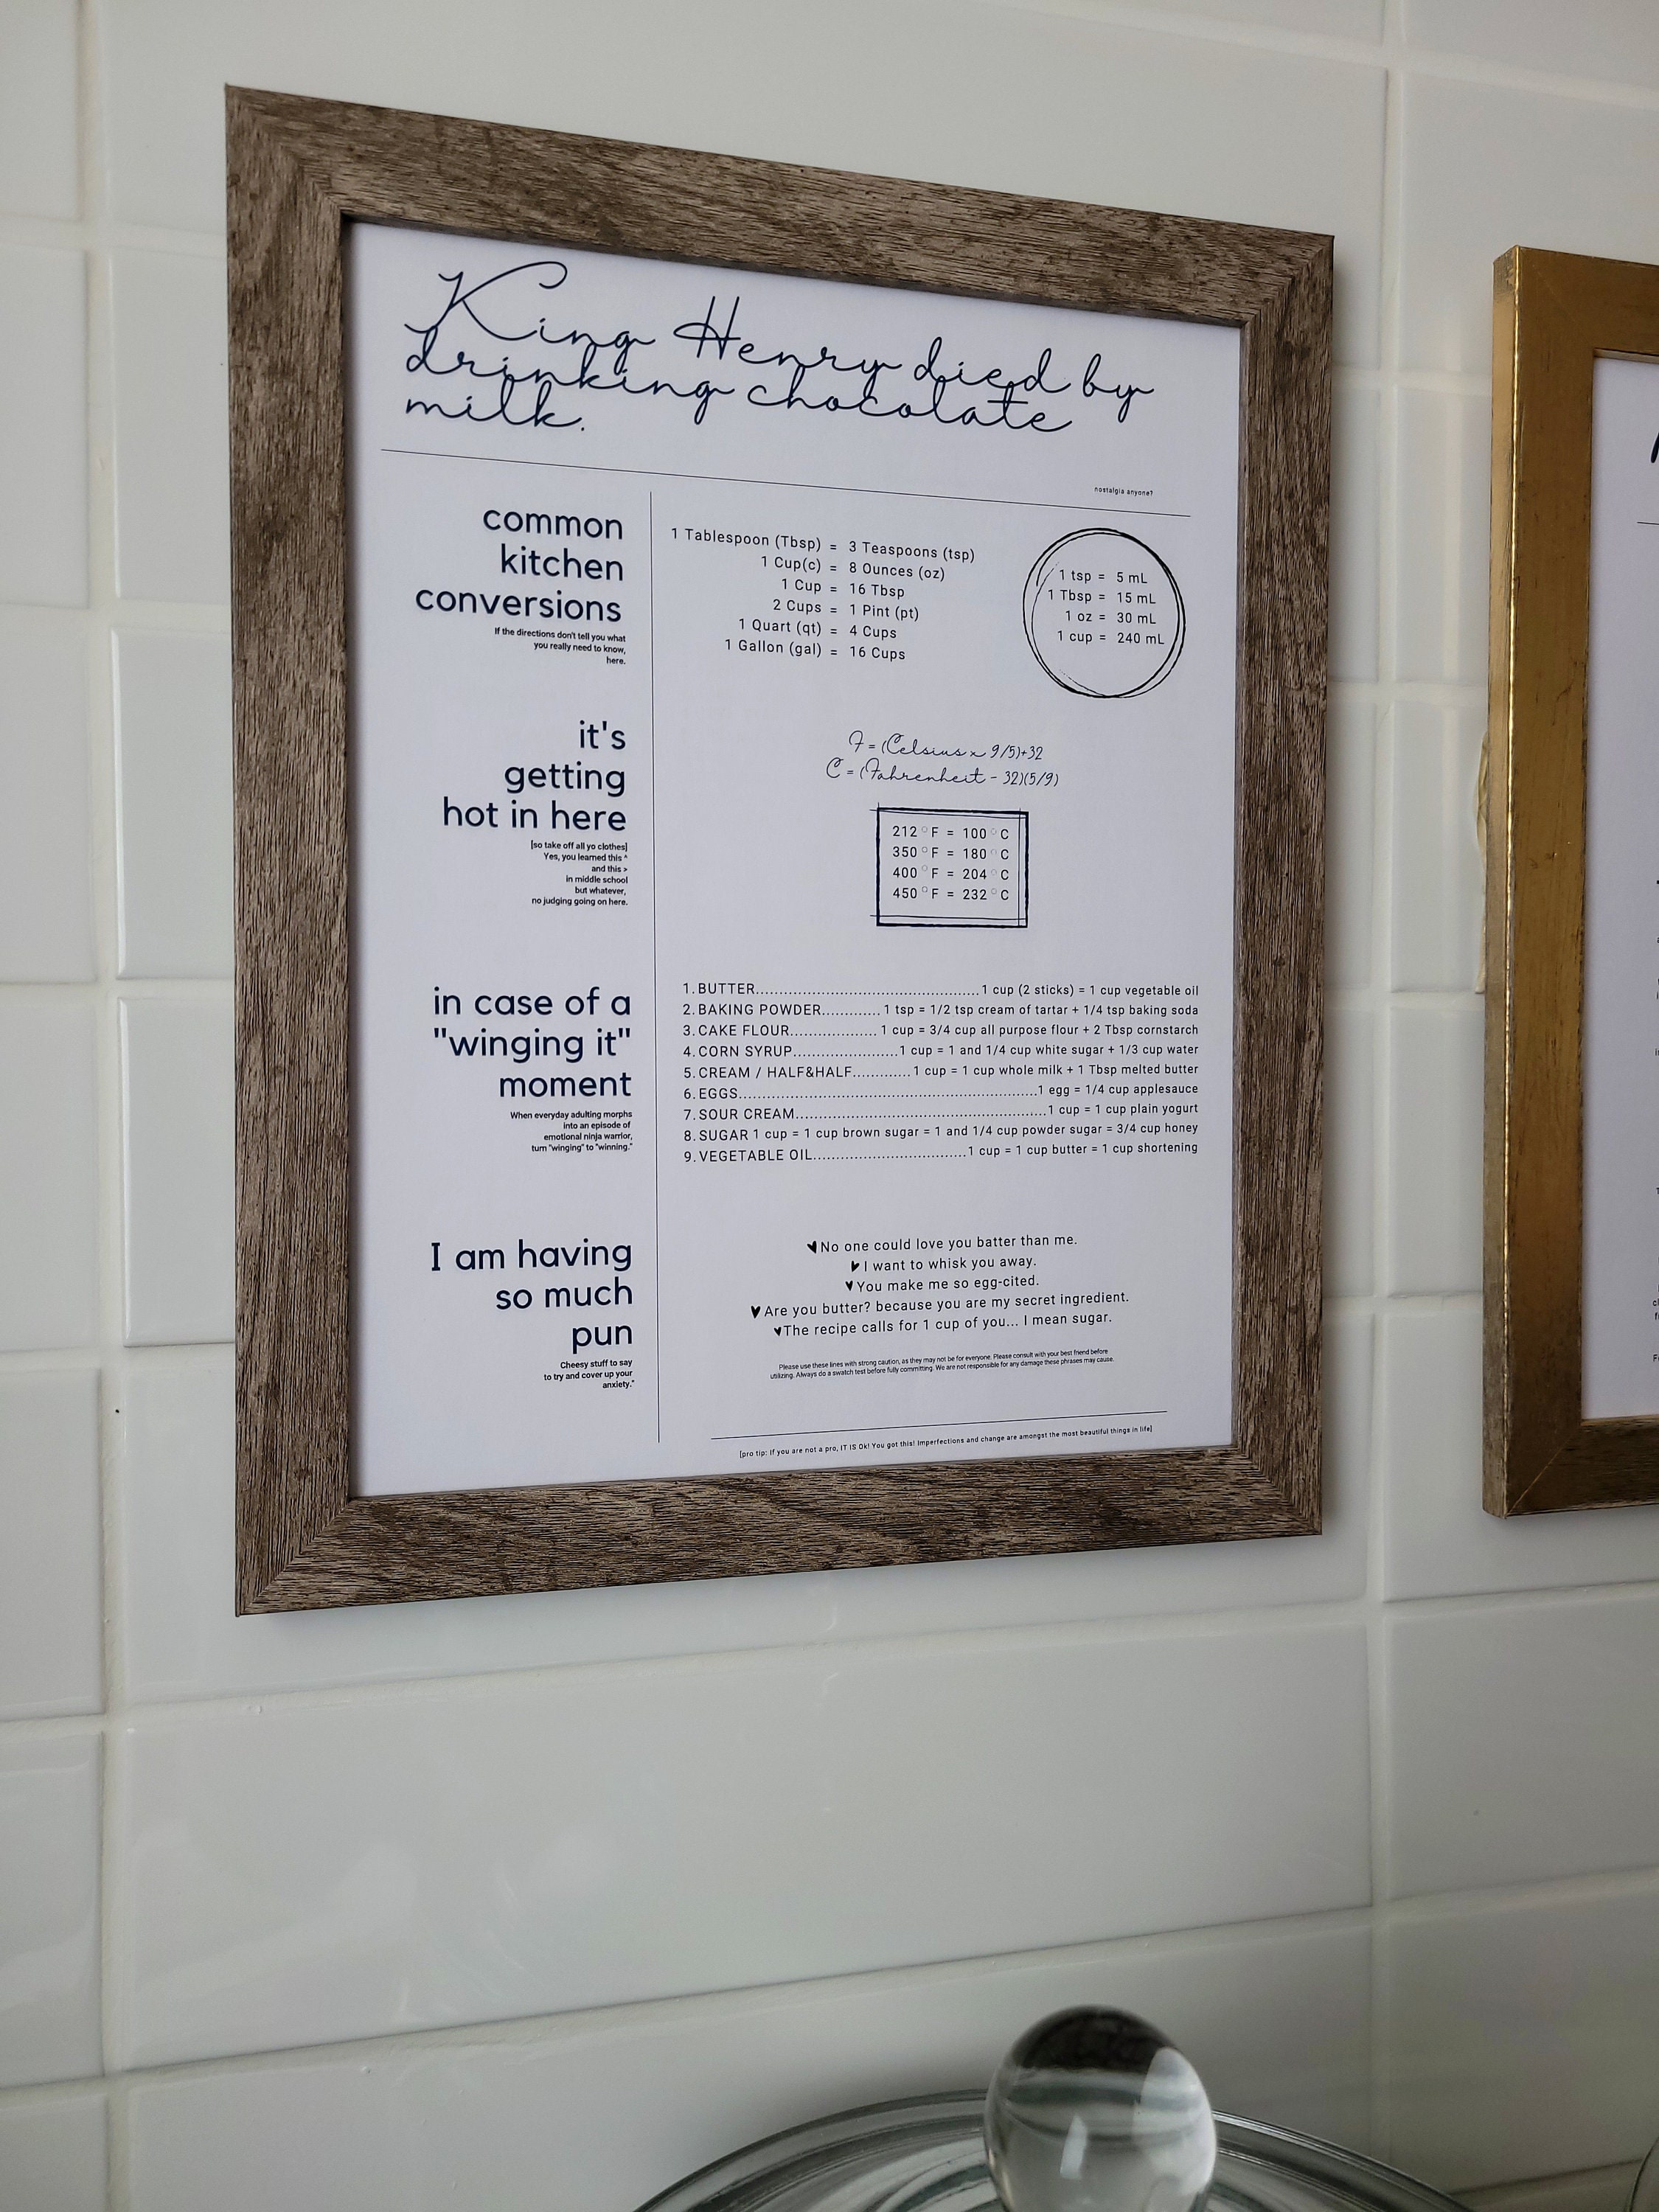 King Henry died by
drinking chocolate
milk.
nostalgia anyone?
common
kitchen
conversions
If the directions don't tell you what
you really need to know,
here.
1 Tablespoon (Tbsp) = 3 Teaspoons (tsp)
1 Cup(c) = 8 Ounces (oz)
1 Cup = 16 Tbsp
2 Cups = 1 Pint (pt)
1 Quart (qt) = 4 Cups
1 Gallon (gal) = 16 Cups
1 tsp = 5 mL
1 Tbsp = 15 mL
1 oz = 30 mL
1 cup = 240 mL
it's
getting
hot in here
[so take off all yo clothes]
Yes, you learned this ^
and this >
in middle school
but whatever,
no judging going on here.
F = (Celsius x 9/5)+32
C = (Fahrenheit - 32)(5/9)
212 °F = 100 °C
350 °F = 180 °C
400 °F = 204 °C
450 °F = 232 °C
in case of a
"winging it"
moment
When everyday adulting morphs
into an episode of
emotional ninja warrior,
turn "winging" to "winning."
1. BUTTER.......................................................1 cup (2 sticks) = 1 cup vegetable oil
2. BAKING POWDER.............1 tsp = 1/2 tsp cream of tartar + 1/4 tsp baking soda
3. CAKE FLOUR...................1 cup = 3/4 cup all purpose flour + 2 Tbsp cornstarch
4. CORN SYRUP.......................1 cup = 1 and 1/4 cup white sugar + 1/3 cup water
5. CREAM / HALF&HALF............1 cup = 1 cup whole milk + 1 Tbsp melted butter
6. EGGS.....................................................................1 egg = 1/4 cup applesauce
7. SOUR CREAM.........................................................1 cup = 1 cup plain yogurt
8. SUGAR 1 cup = 1 cup brown sugar = 1 and 1/4 cup powder sugar = 3/4 cup honey
9. VEGETABLE OIL..................................1 cup = 1 cup butter = 1 cup shortening
I am having
so much
pun
Cheesy stuff to say
to try and cover up your
anxiety.*
♥No one could love you batter than me.
♥I want to whisk you away.
♥You make me so egg-cited.
♥Are you butter? because you are my secret ingredient.
♥The recipe calls for 1 cup of you... I mean sugar.
Please use these lines with strong caution, as they may not be for everyone. Please consult with your best friend before
utilizing. Always do a swatch test before fully committing. We are not responsible for any damage these phrases may cause.
[pro tip: If you are not a pro, IT IS Ok! You got this! Imperfections and change are amongst the most beautiful things in life]